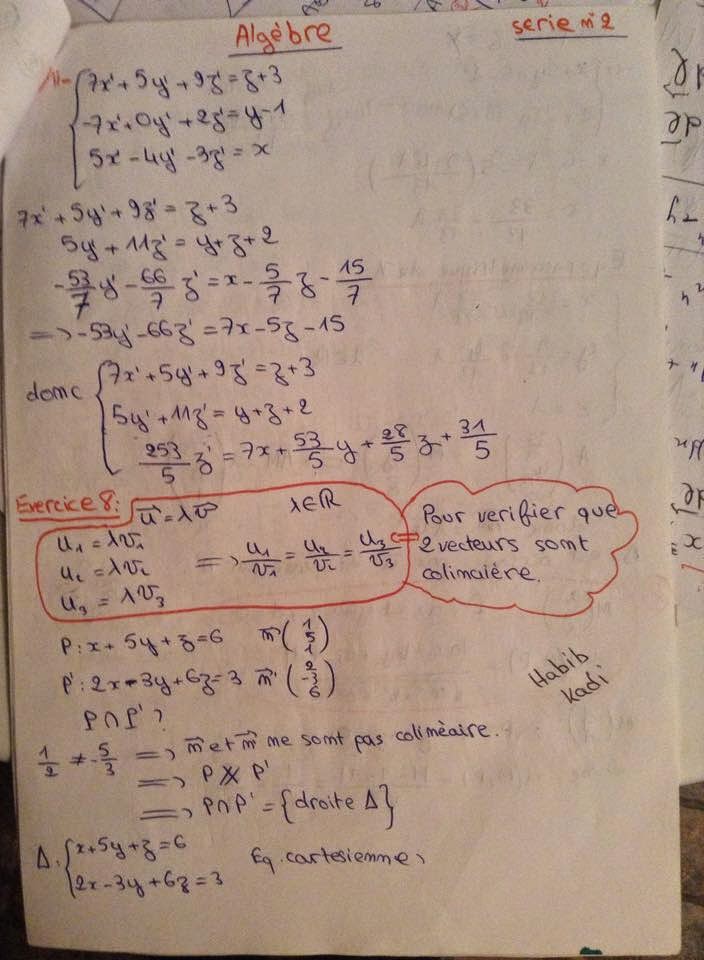 Algèbre serie n°2
11- { 7x' + 5y' + 9z' = z+3
-7x' + 0y' + 2z' = y-1
5x' - 4y' - 3z' = x
7x' + 5y' + 9z' = z+3
5y' + 11z' = y+z+2
-53/7 y' - 66/7 z' = x - 5/7 z - 15/7
=> -53y' - 66z' = 7x - 5z - 15
donc { 7x' + 5y' + 9z' = z+3
5y' + 11z' = y+z+2
253/5 z' = 7x + 53/5 y + 28/5 z + 31/5
Exercice 8: u = λv λ∈ℝ
u1 = λv1
u2 = λv2 => u1/v1 = u2/v2 = u3/v3
u3 = λv3
Pour verifier que
2 vecteurs sont
colinaière.
P: x + 5y + z = 6 n (1 5 1)
P': 2x - 3y + 6z = 3 n' (2 -3 6)
Habib
Kadi
P ∩ P' ?
1/2 ≠ -5/3 => n et n' ne sont pas colinèaire.
=> P ∦ P'
=> P ∩ P' = {droite Δ}
Δ: { x+5y+z=6 Eq. cartesienne
2x-3y+6z=3